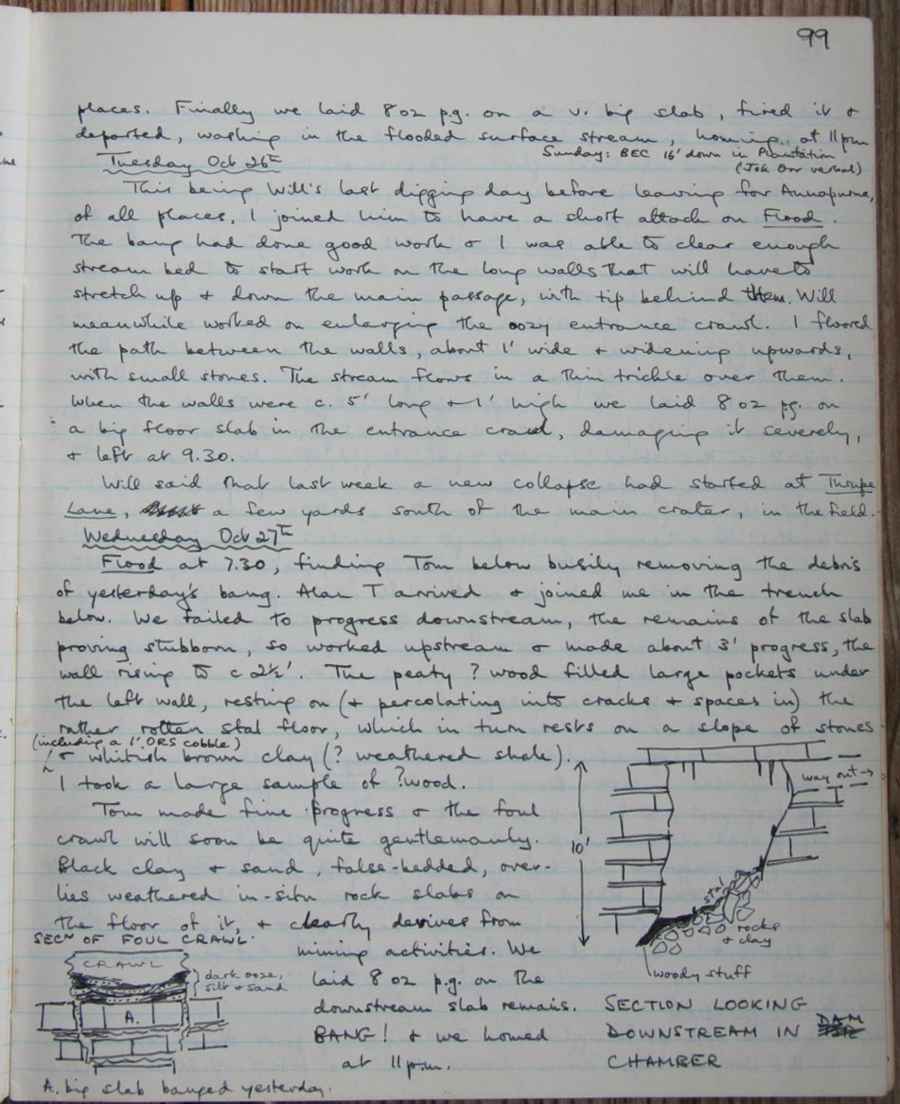 99
places. Finally we laid 8 oz p.g. on a v. big slab, fired it &
departed, washing in the flooded surface stream, homing at 11pm
Sunday: BEC 16' down in Plantation
(Jok Orr verbal)
Tuesday Oct 26th
This being Will's last digging day before leaving for Annapurna,
of all places, I joined him to have a short attack on Flood.
The bang had done good work & I was able to clear enough
stream bed to start work on the long walls that will have to
stretch up & down the main passage, with tip behind them. Will
meanwhile worked on enlarging the oozy entrance crawl. I floored
the path between the walls, about 1' wide & widening upwards,
with small stones. The stream flows in a thin trickle over them.
When the walls were c. 5' long & 1' high we laid 8 oz pg. on
a big floor slab in the entrance crawl, damaging it severely,
& left at 9.30.
Will said that last week a new collapse had started at Thrupe
Lane, a few yards south of the main crater, in the field.
Wednesday Oct 27th
Flood at 7.30, finding Tom below busily removing the debris
of yesterday's bang. Alan T arrived & joined me in the trench
below. We failed to progress downstream, the remains of the slab
proving stubborn, so worked upstream & made about 3' progress, the
wall rising to c 2½'. The peaty ? wood filled large pockets under
the left wall, resting on (& percolating into cracks & spaces in) the
rather rotten stal floor, which in turn rests on a slope of stones
(including a 1' ORS cobble)
& whitish brown clay (? weathered shale).
I took a large sample of ?wood.
Tom made fine progress & the foul
crawl will soon be quite gentlemanly.
Black clay & sand, false-bedded, over-
lies weathered in-situ rock slabs on
the floor of it, & clearly derives from
mining activities. We
laid 8 oz p.g. on the
downstream slab remains.
BANG! & we homed
at 11 p.m.
SECN OF FOUL CRAWL.
CRAWL
dark ooze,
silt & sand
A.
A. big slab banged yesterday.
way out →
10'
stal
rocks
& clay
woody stuff
SECTION LOOKING
DOWNSTREAM IN DAM
CHAMBER